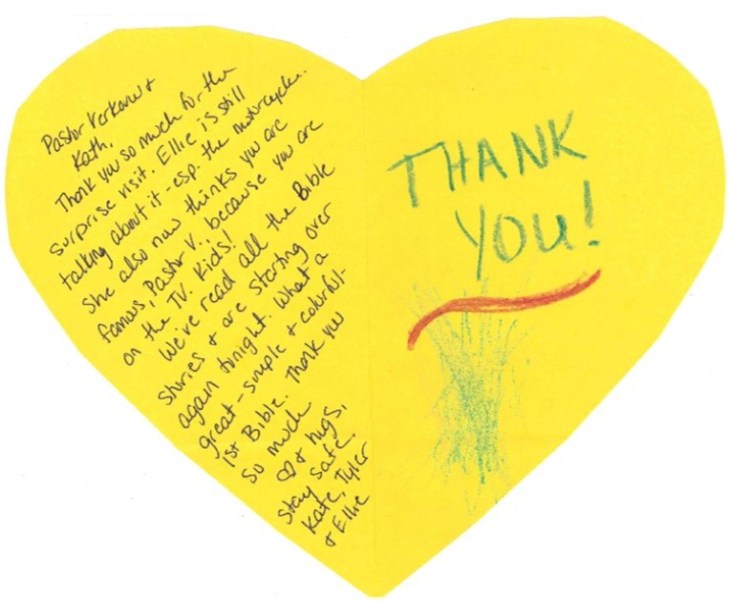 Pastor Verkouw &
Kath,
Thank you so much for the
surprise visit. Ellie is still
talking about it - esp. the motorcycle.
She also now thinks you are
famous, Pastor V., because you are
on the TV. Kids!
We've read all the Bible
stories & are starting over
again tonight. What a
great - simple & colorful -
1st Bible. Thank you
so much
♡ & hugs,
stay safe.
Kate, Tyler
& Ellie
THANK
YOU!